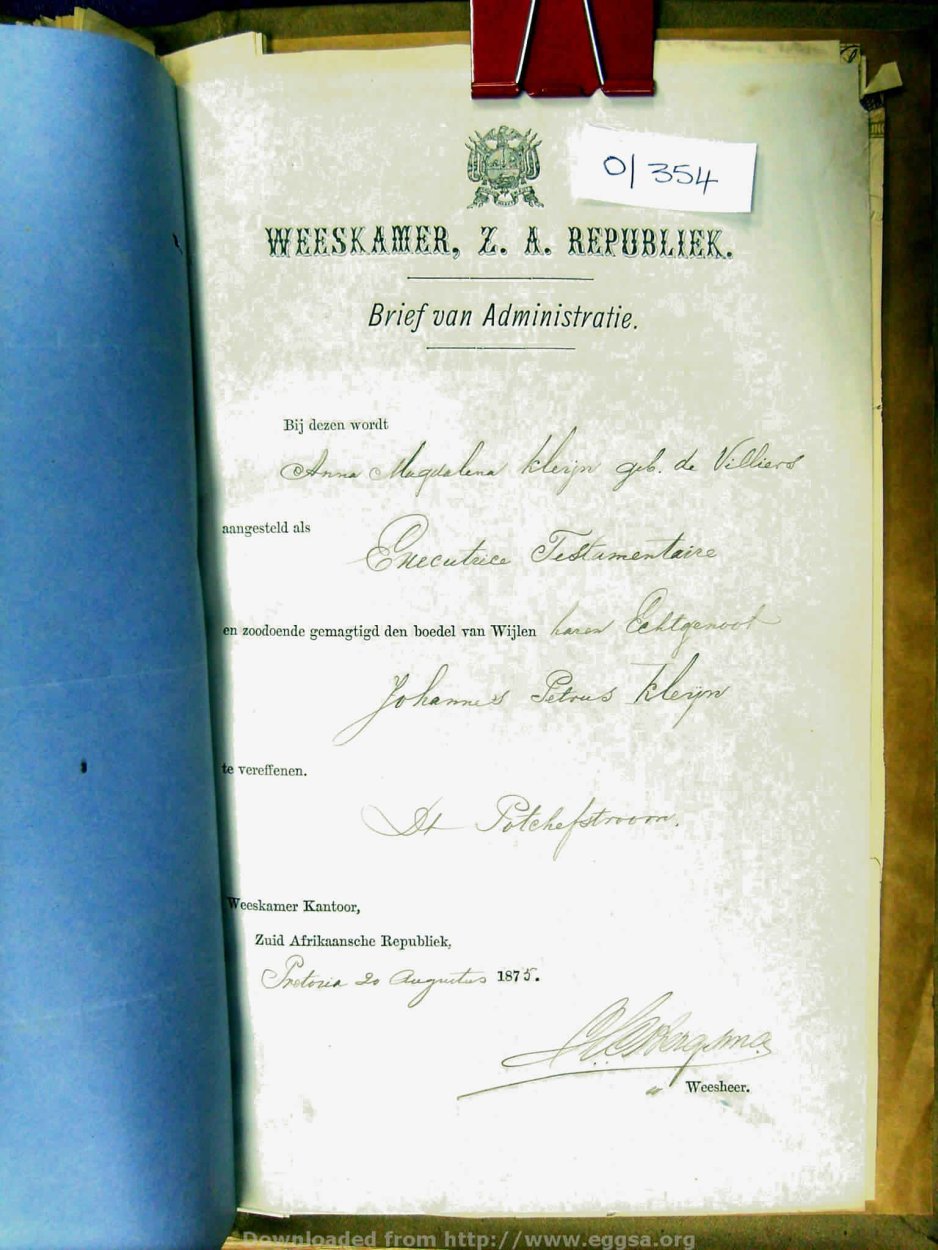 O/354
WEESKAMER, Z. A. REPUBLIEK.
Brief van Administratie.
Bij dezen wordt
Anna Magdalena Kleijn geb. de Villiers
aangesteld als
Executrice Testamentaire
en zoodoende gemagtigd den boedel van Wijlen haren Echtgenoot
Johannes Petrus Kleijn
te vereffenen.
Dt Potchefstroom.
Weeskamer Kantoor,
Zuid Afrikaansche Republiek,
Pretoria 20 Augustus 1875.
Bergsma
" Weesheer.
Downloaded from http://www.eggsa.org